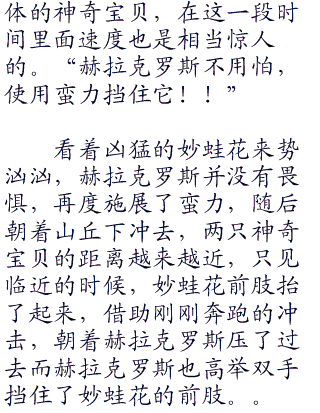 体的神奇宝贝，在这一段时
间里面速度也是相当惊人
的。“赫拉克罗斯不用怕，
使用蛮力挡住它！！”
看着凶猛的妙蛙花来势
汹汹，赫拉克罗斯并没有畏
惧，再度施展了蛮力，随后
朝着山丘下冲去，两只神奇
宝贝的距离越来越近，只见
临近的时候，妙蛙花前肢抬
了起来，借助刚刚奔跑的冲
击，朝着赫拉克罗斯压了过
去而赫拉克罗斯也高举双手
挡住了妙蛙花的前肢。。